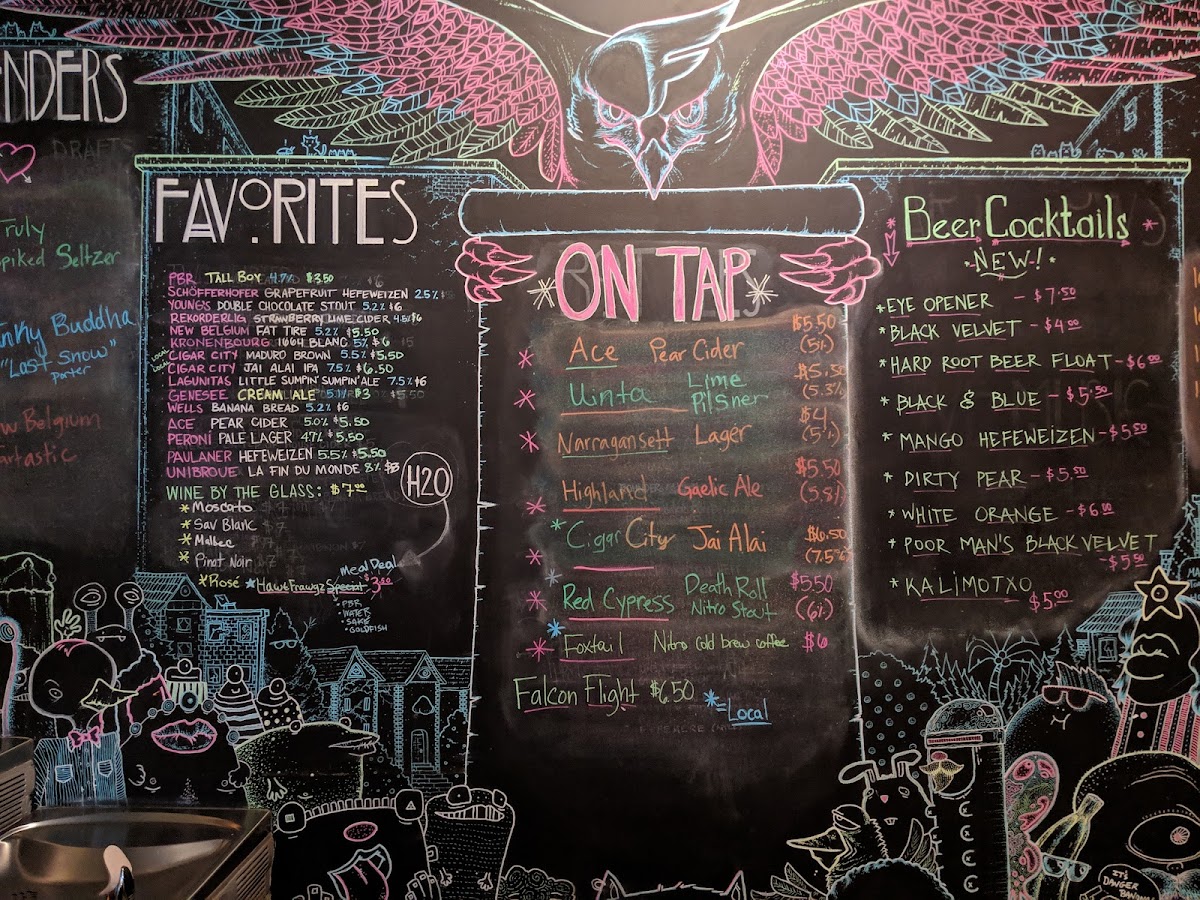 NDERS
DRAFTS
Truly
Spiked Seltzer
nky Buddha
"Last Snow"
porter
w Belgium
artastic
FAVORITES
PBR TALL BOY 4.7% $3.50
SCHÖFFERHOFER GRAPEFRUIT HEFEWEIZEN 2.5%
YOUNG'S DOUBLE CHOCOLATE STOUT 5.2% $6
REKORDERLIG STRAWBERRY LIME CIDER 4.5% $6
NEW BELGIUM FAT TIRE 5.2% $5.50
KRONENBOURG 1664 BLANC 5% $6
LOCAL CIGAR CITY MADURO BROWN 5.5% $5.50
LOCAL CIGAR CITY JAI ALAI IPA 7.5% $6.50
LAGUNITAS LITTLE SUMPIN' SUMPIN' ALE 7.5% $6
GENESEE CREAM ALE 5.1% $3
WELLS BANANA BREAD 5.2% $6
ACE PEAR CIDER 5.0% $5.50
PERONI PALE LAGER 4.7% $5.50
PAULANER HEFEWEIZEN 5.5% $5.50
UNIBROUE LA FIN DU MONDE 8% $8
WINE BY THE GLASS: $7.00
*Moscato
*Sav Blank
*Malbec
*Pinot Noir
*Rosé *HawkFrawgz Special $3.00
Meal Deal
• PBR
• WATER
• SAKE
• GOLDFISH
H2O
F
*ON TAP*
* Ace Pear Cider $5.50 (5%)
* Uinta Lime Pilsner $5.50 (5.3%)
* Narragansett Lager $4 (5%)
Highland Gaelic Ale $5.50 (5.8%)
* *Cigar City Jai Alai $6.50 (7.5%
* * Red Cypress Death Roll Nitro Stout $5.50 (6%)
* * Foxtail Nitro cold brew coffee $6
Falcon Flight $6.50
*=Local
* Beer Cocktails *
-NEW!-
*EYE OPENER - $7.50
*BLACK VELVET - $4.00
*HARD ROOT BEER FLOAT - $6.00
* BLACK & BLUE - $5.50
* MANGO HEFEWEIZEN - $5.50
* DIRTY PEAR - $5.50
* WHITE ORANGE - $6.00
* POOR MAN'S BLACK VELVET
- $5.50
* KALIMOTXO
$5.00
IT'S
DANGER
BANANA